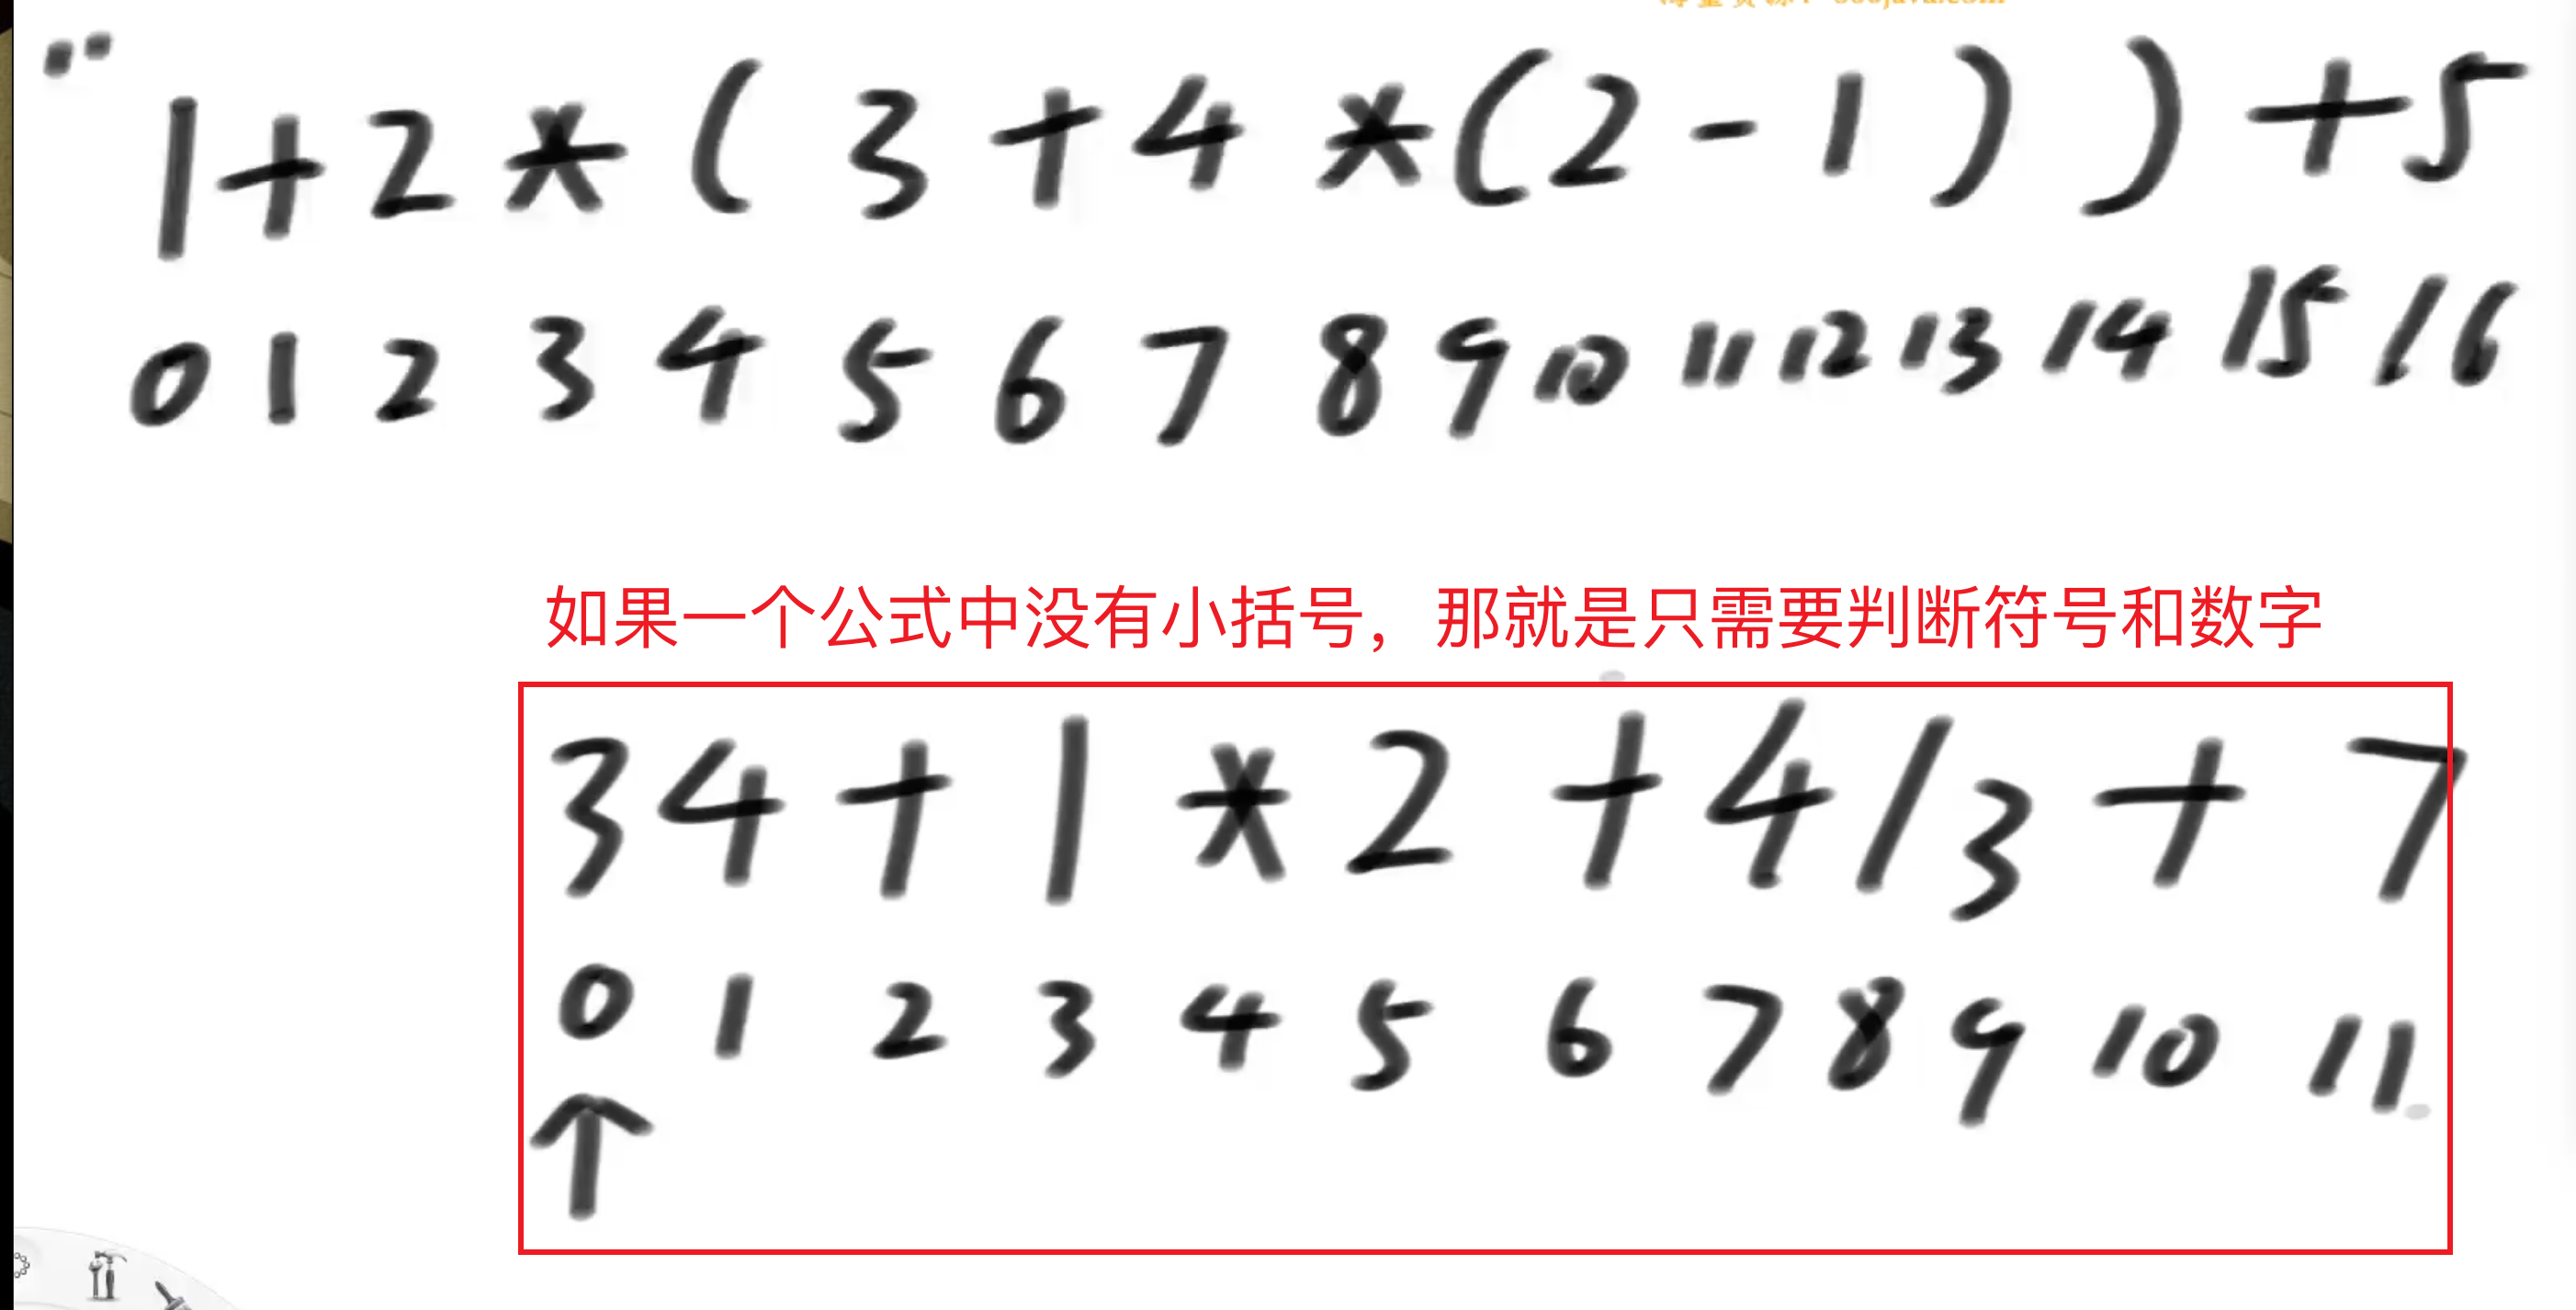 1+2*(3+4*(2-1))+5
0 1 2 3 4 5 6 7 8 9 10 11 12 13 14 15 16
如果一个公式中没有小括号，那就是只需要判断符号和数字
34+1*2+4/3+7
0 1 2 3 4 5 6 7 8 9 10 11